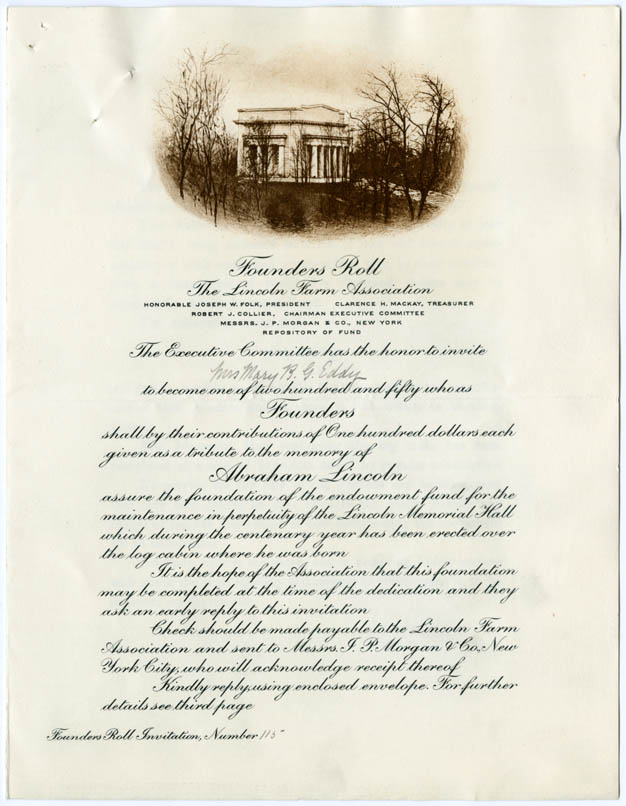 Founders Roll
The Lincoln Farm Association
HONORABLE JOSEPH W. FOLK, PRESIDENT CLARENCE H. MACKAY, TREASURER
ROBERT J. COLLIER, CHAIRMAN EXECUTIVE COMMITTEE
MESSRS. J. P. MORGAN & CO., NEW YORK
REPOSITORY OF FUND
The Executive Committee has the honor to invite
Mrs Mary B. G. Eddy
to become one of two hundred and fifty who as
Founders
shall by their contributions of One hundred dollars each
given as a tribute to the memory of
Abraham Lincoln
assure the foundation of the endowment fund for the
maintenance in perpetuity of the Lincoln Memorial Hall
which during the centenary year has been erected over
the log cabin where he was born
It is the hope of the Association that this foundation
may be completed at the time of the dedication and they
ask an early reply to this invitation
Check should be made payable to the Lincoln Farm
Association and sent to Messrs. J. P. Morgan & Co., New
York City, who will acknowledge receipt thereof
Kindly reply, using enclosed envelope. For further
details see third page
Founders Roll Invitation, Number 115